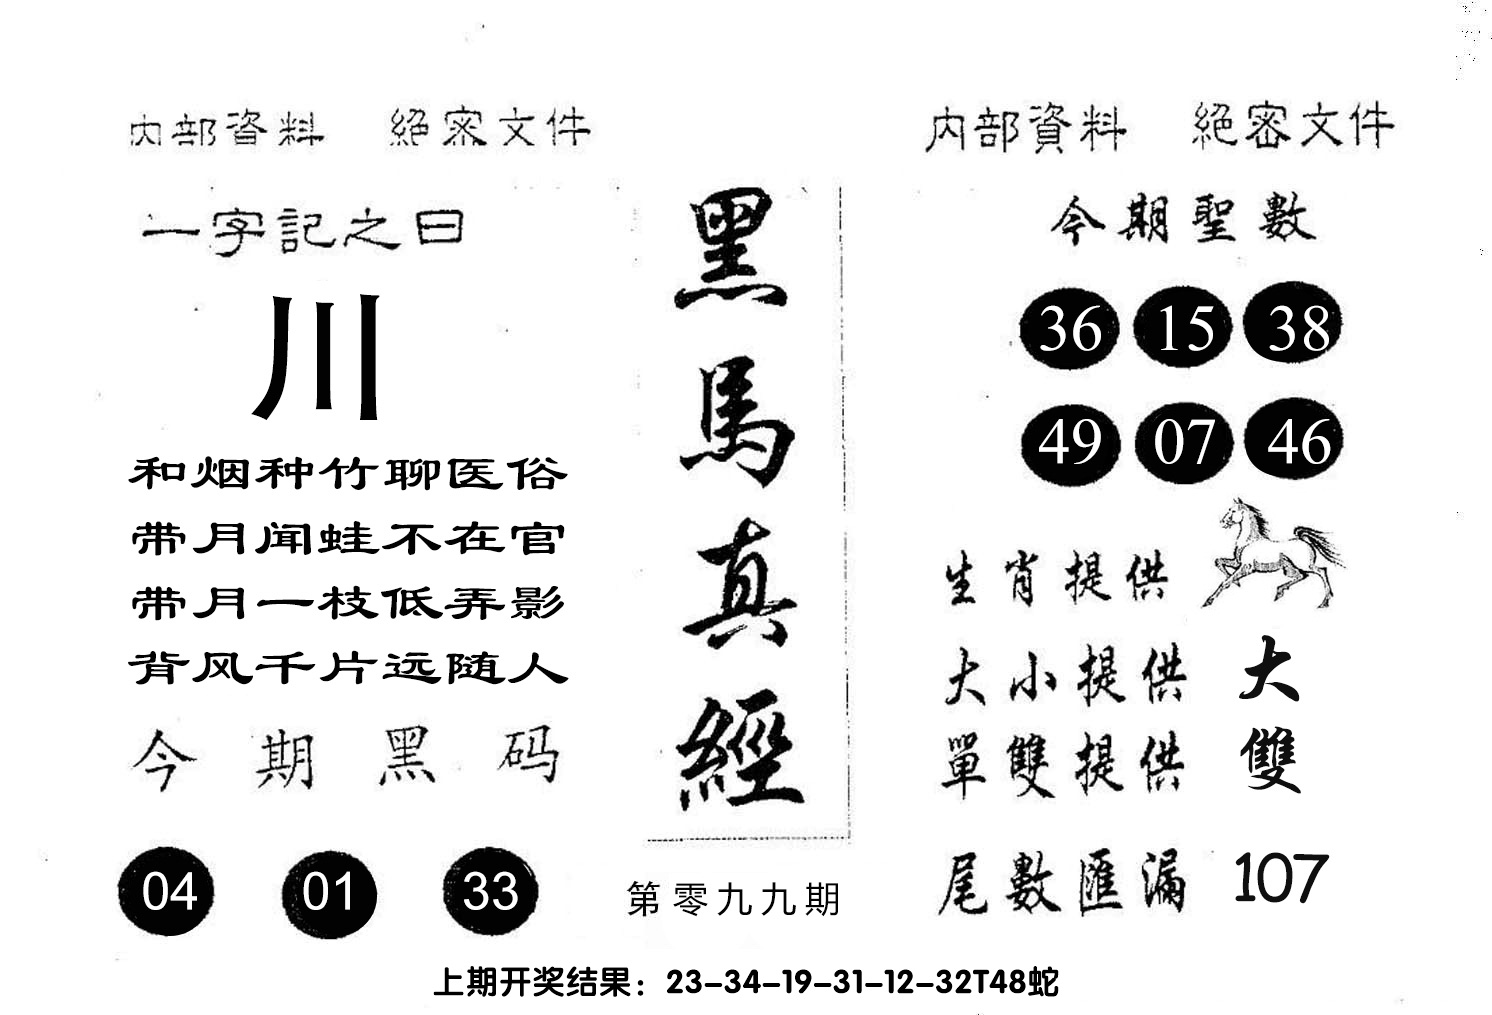 内部資料 絕密文件
一字記之曰
川
和烟种竹聊医俗
带月闻蛙不在官
带月一枝低弄影
背风千片远随人
今期黑码
04 01 33
黑馬真經
第零九九期
内部資料 絕密文件
今期聖數
36 15 38
49 07 46
生肖提供
大小提供 大
單雙提供 雙
尾數匯漏 107
上期开奖结果：23-34-19-31-12-32T48蛇